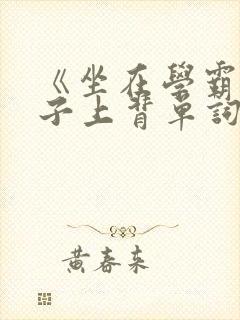 《坐在學霸
子上背單詞
黃春來